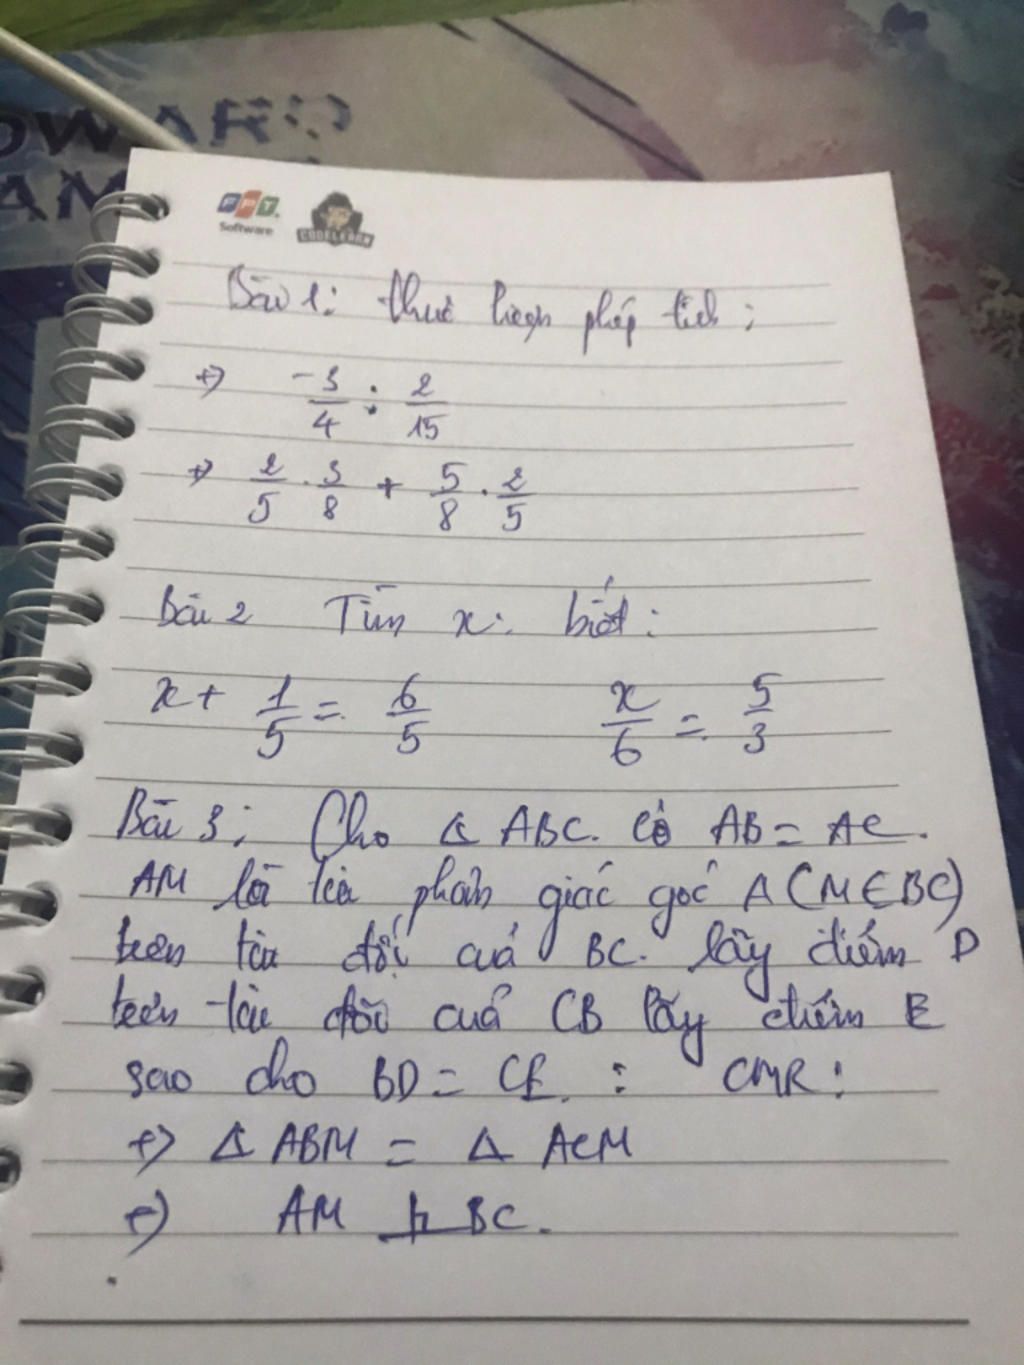 OWARD
AM
FPT.
Software
CODELEARN
Bài 1: thuc hien phép tích;
+) -3/4 : 2/15
+) 2/5 . 3/8 + 5/8 . 2/5
Bài 2 Tìm x: biết:
x + 1/5 = 6/5 x/6 = 5/3
Bài 3; Cho Δ ABC. Có AB = AC.
AM là tia phân giác goc A (M ∈ BC)
tren tia đối cuả BC. lấy điểm D
tren tia đối cuả CB lấy điểm E
sao cho BD = CE. : CMR:
+) Δ ABM = Δ ACM
+) AM ⊥ BC.